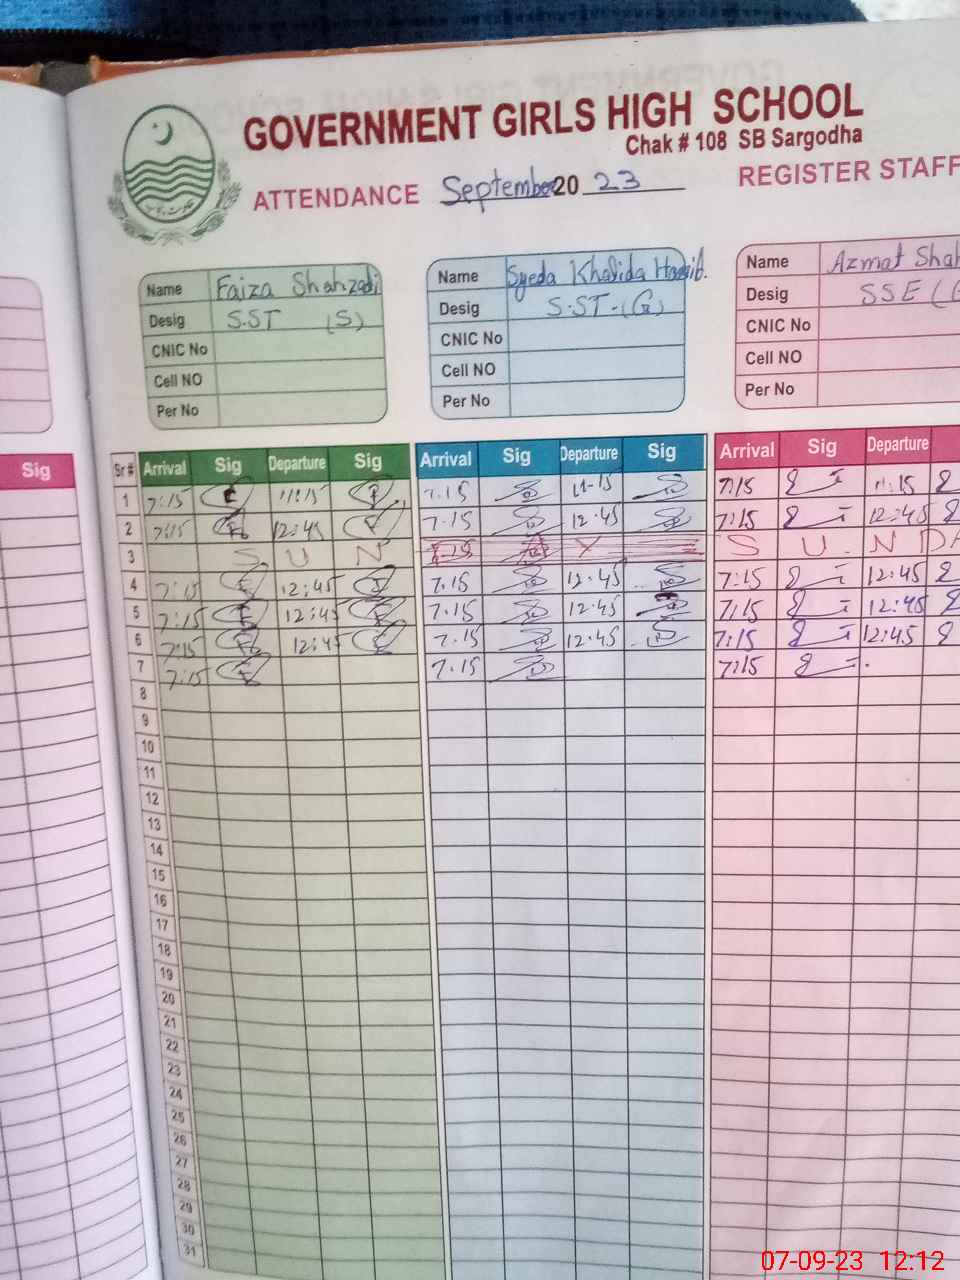 GOVERNMENT GIRLS HIGH SCHOOL
Chak # 108 SB Sargodha
ATTENDANCE September 20 23 REGISTER STAFF
Name Faiza Shahzadi
Desig S.ST (S)
CNIC No
Cell NO
Per No
Name Syeda Khalida
Desig S.ST-(G)
CNIC No
Cell NO
Per No
Name Azmat Shah
Desig SSE (
CNIC No
Cell NO
Per No
Sig
Sr # Arrival Sig Departure Sig Arrival Sig Departure Sig Arrival Sig Departure
1 7:15 11:15 7.15 11-15 7:15 11.15
2 7:15 12:45 7.15 12.45 7:15 12:45
3 S U N A Y S U N D A
4 7:15 12:45 7.15 12.45 7:15 12:45
5 7:15 12:45 7.15 12.45 7:15 12:45
6 7:15 12:45 7.15 12.45 7:15 12:45
7 7:15 7.15 7:15
8
9
10
11
12
13
14
15
16
17
18
19
20
21
22
23
24
25
26
27
28
29
30
31
07-09-23 12:12